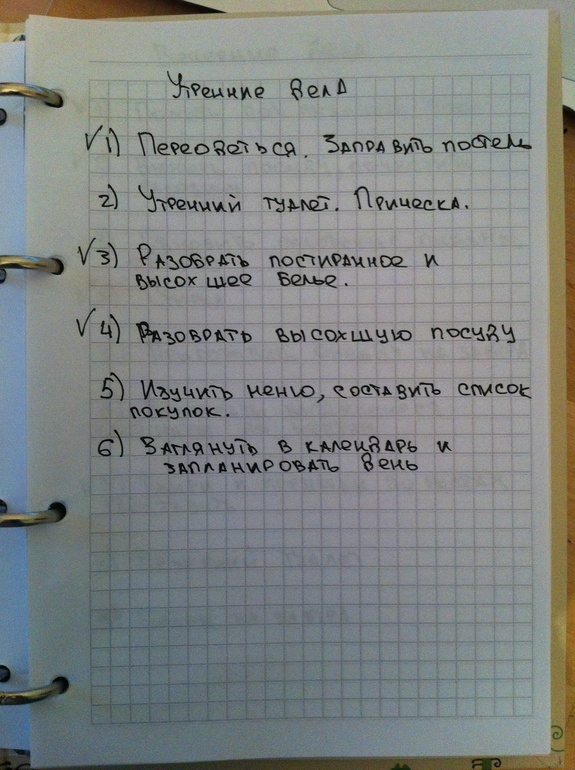 Утренние дела
√ 1) Переодеться. Заправить постель
2) Утренний туалет. Прическа.
√ 3) Разобрать постиранное и
высохшее белье.
√ 4) Разобрать высохшую посуду
5) Изучить меню, составить список
покупок.
6) Заглянуть в календарь и
запланировать день